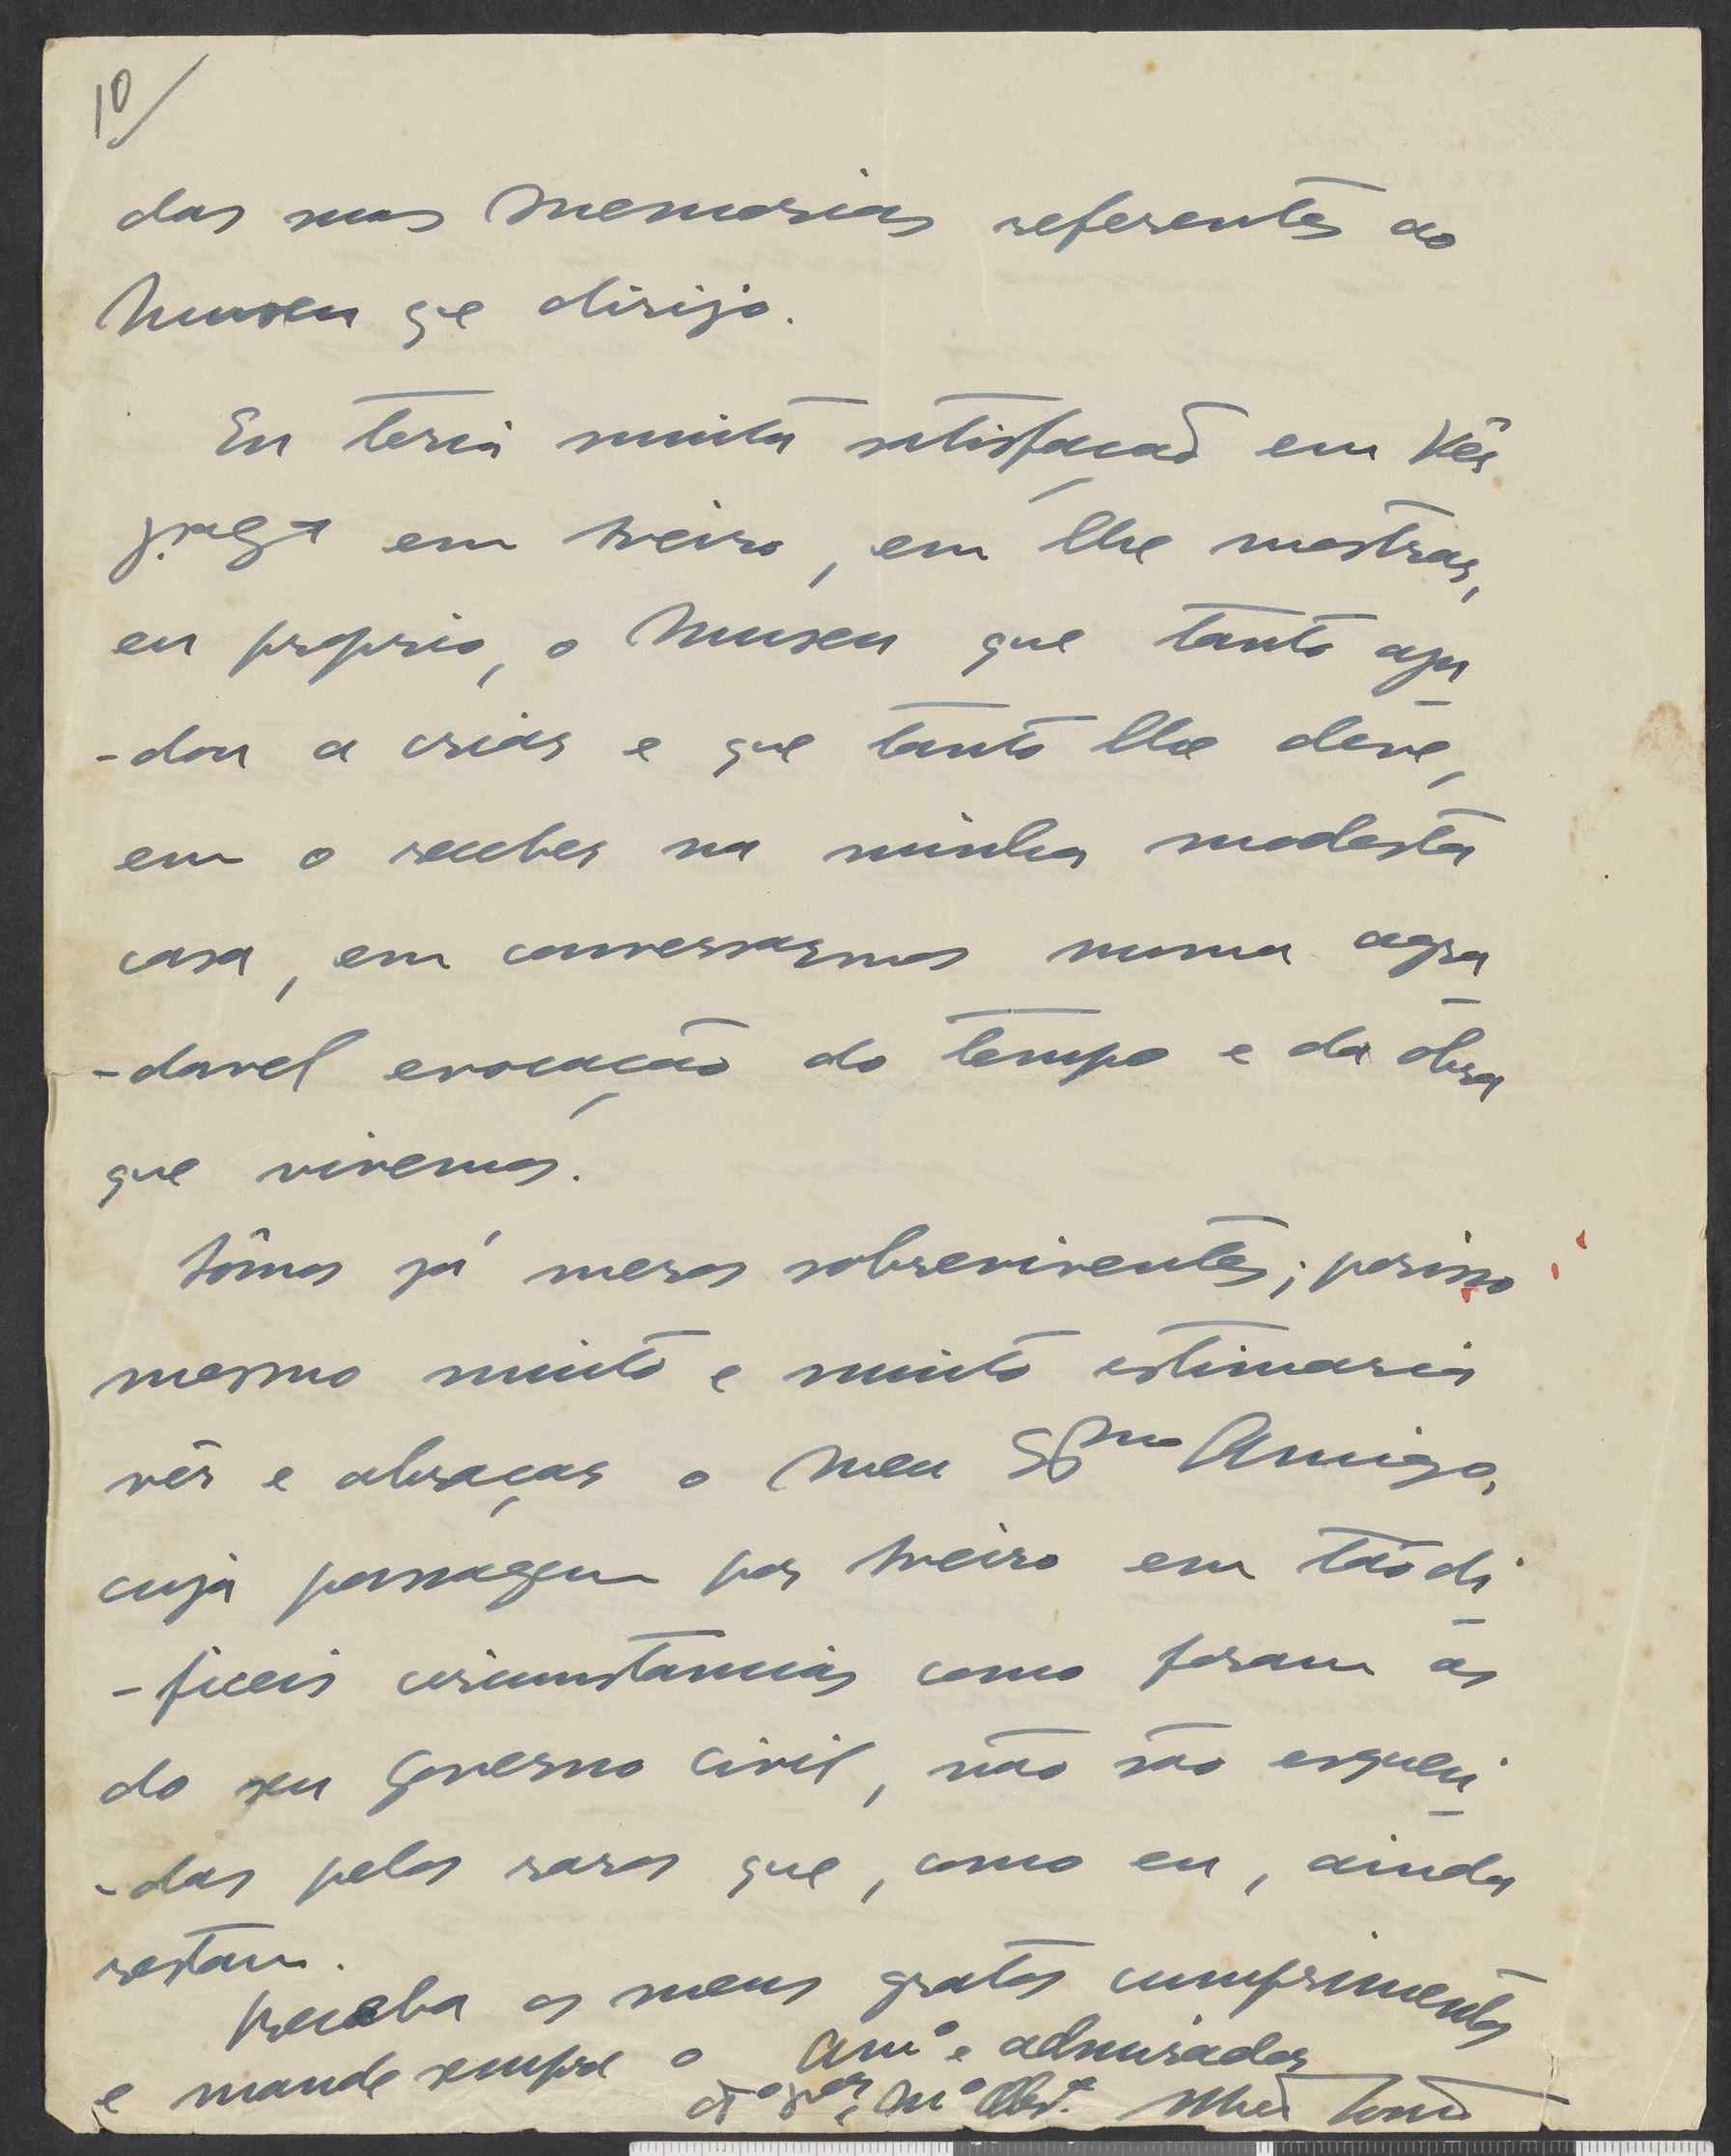 10/
das suas Memorias referentes ao
Museu qe dirijo.
Eu teria muita satisfação em Vêr
em Aveiro, em lhe mostrar,
eu proprio, o Museu que tanto aju
-dou a criar e que tanto lhe deve,
em o receber na minha modesta
casa, em conversarmos numa agra
-davel evocação do tempo e da óbra
que vivemos.
Sômos já meros sobreviventes; por isso
mesmo muito e muito estimaria
vêr e abraçar o Meu Amigo,
cuja passagem por Aveiro em tão di
-ficeis circunstancias como foram as
do seu Governo Civil, não são esqueci
-das pelos raros que, como eu, ainda
restam.
Receba os meus gratos cumprimentos
e mande sempre o Amº e admirador
Mº Obrº